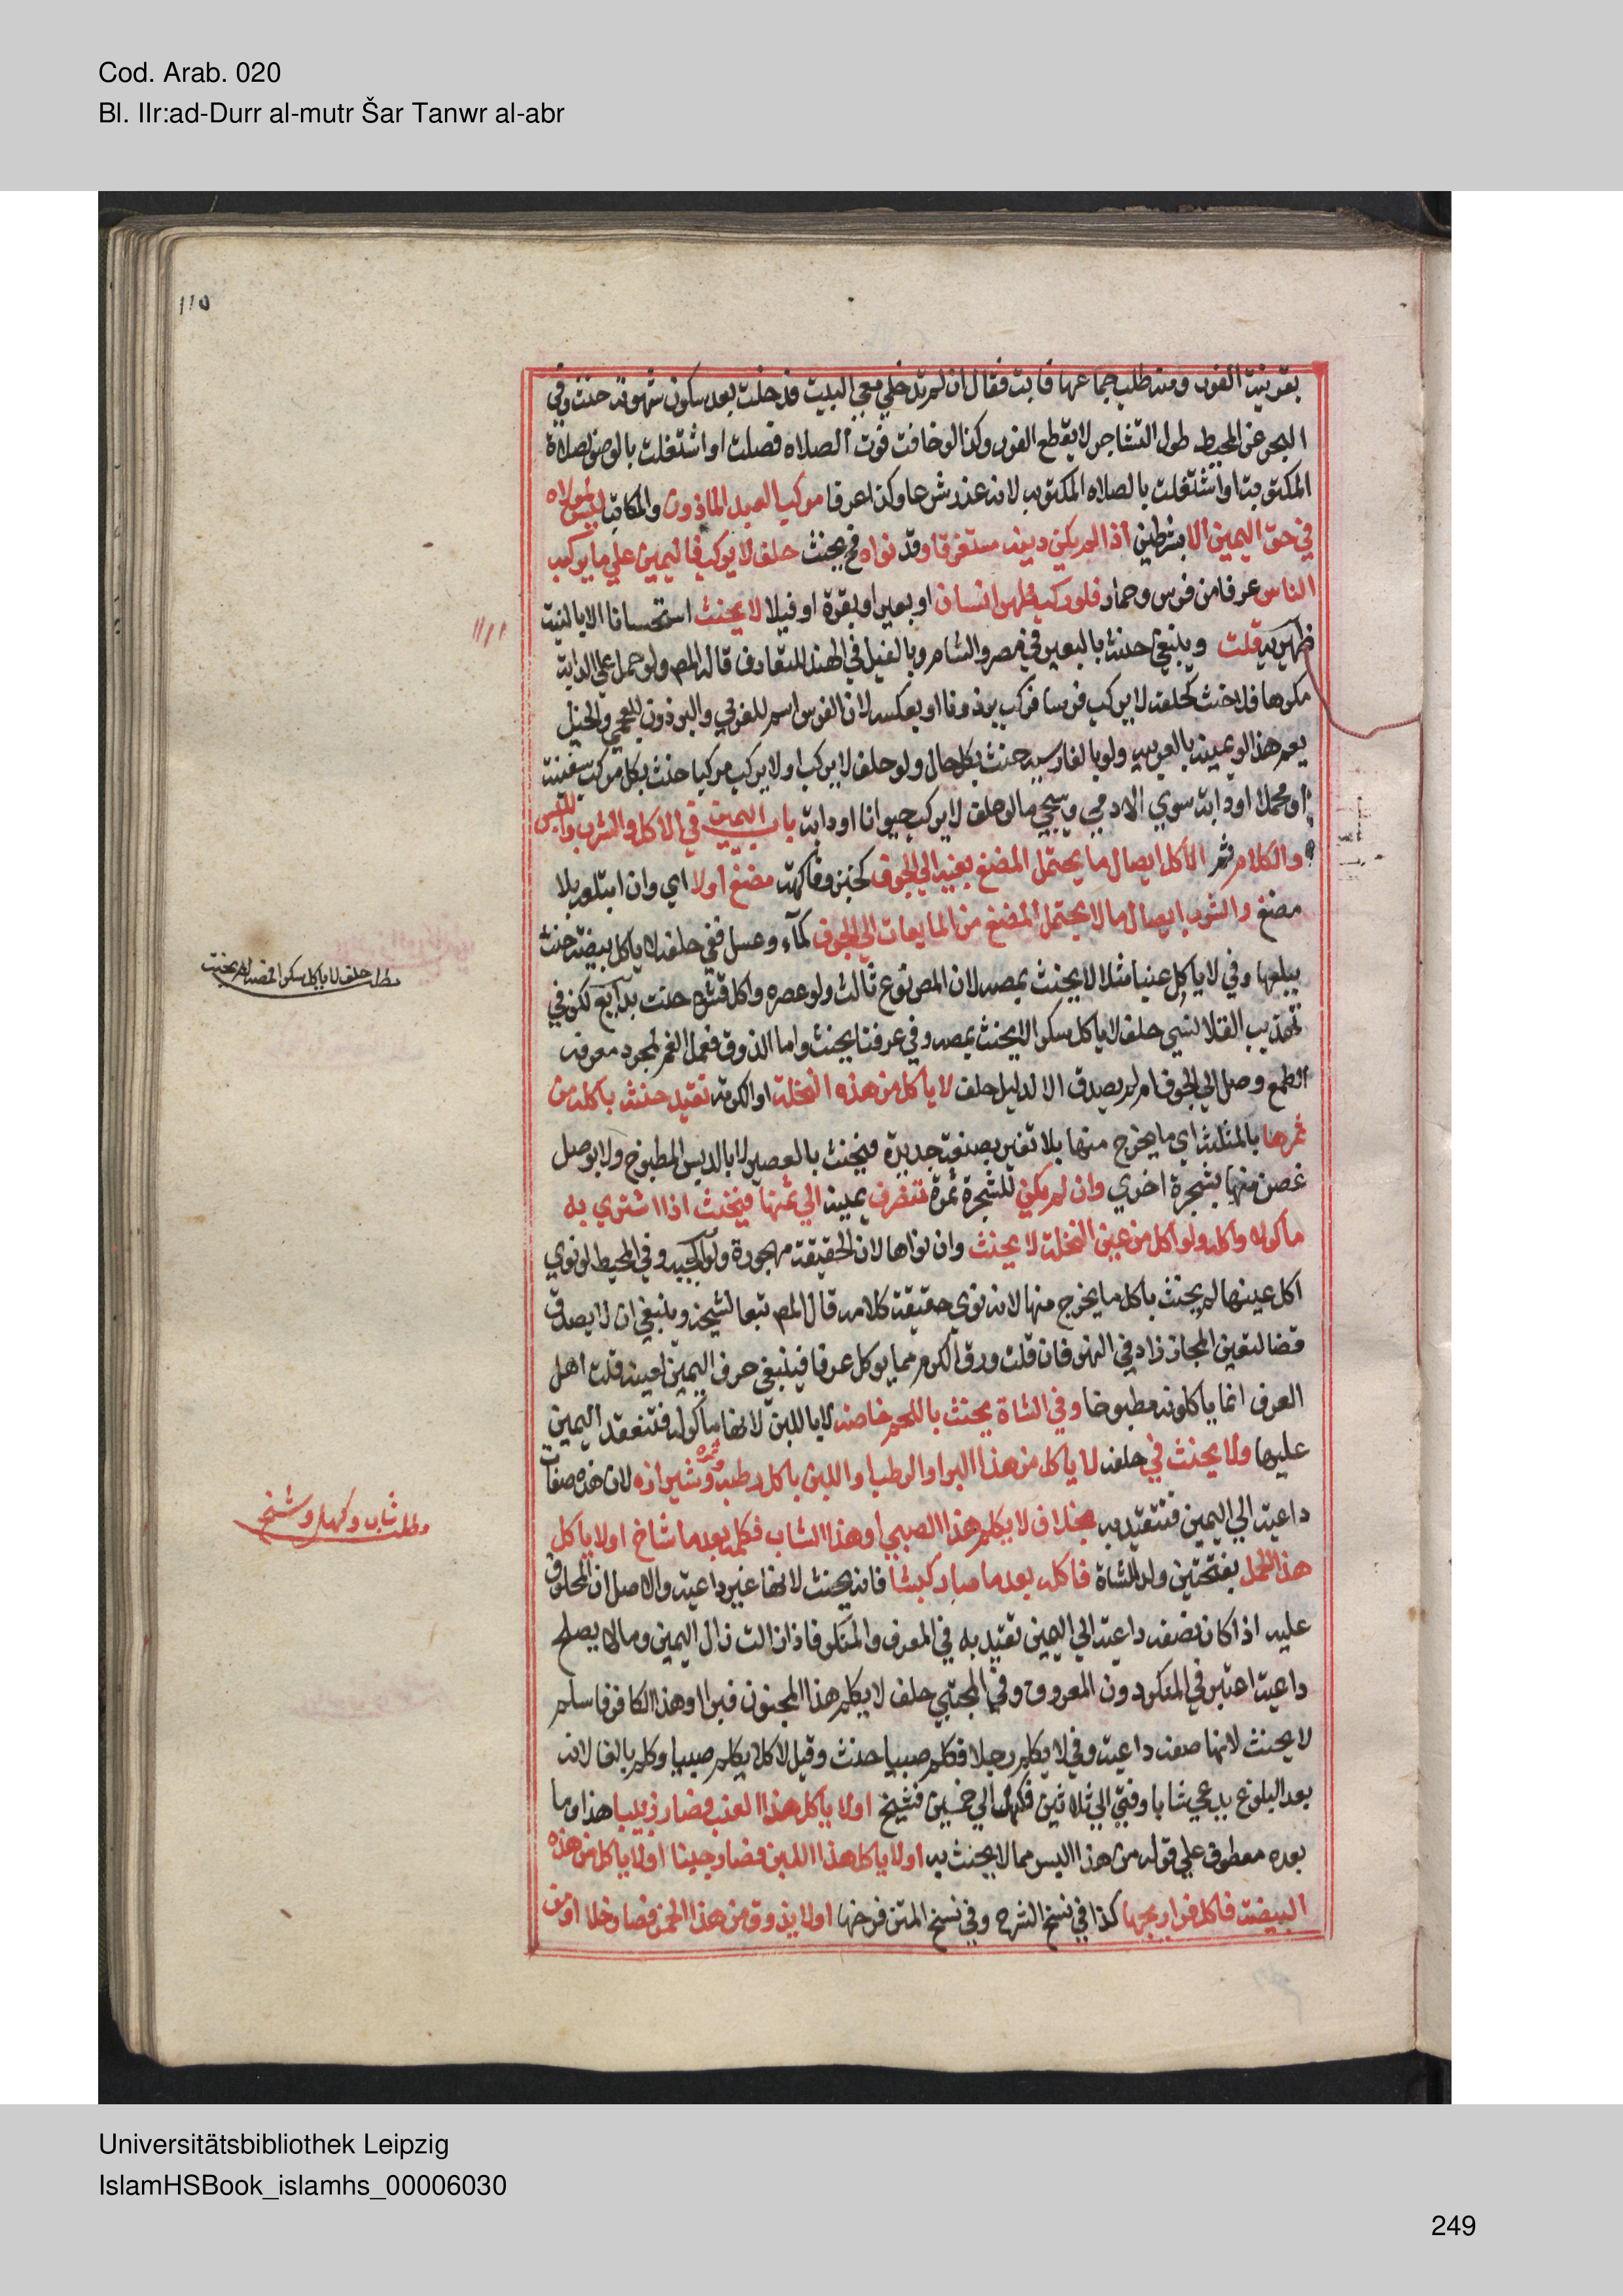 Cod. Arab. 020
Bl. IIr:ad-Durr al-mutr Šar Tanwr al-abr
١١٥
بقرينة الفور ومنه طلب جماعها فابت فقال ان لم تدخلي معي البيت فدخلت بعد سكون شهوته حنث وفي
البحر عن المحيط طول التشاجر لا يقطع الفور وكذا لو خافت فوت الصلاه فصلت او اشتغلت بالوضو لصلاة
المكتوبة او اشتغلت بالصلاه المكتوبه لانه عذر شرعا وكذا عرفا مركب العبد الماذون والمكاتب ليس لمولاه
في حق اليمين الا بشرطين اذا لم يكن دينه مستغرقا وقد نواه فح يحنث حلف لا يركب فاليمين علي ما يركبه
الناس عرفا من فرس وحمار فلو ركب ظهر انسان او بعير او بقرة او فيلا لا يحنث استحسانا الا بالنية
ظهيريه قلت وينبغي حنثه بالبعير في مصر والشام وبالفيل في الهند للتعارف قاله المص ولو حمل علي الدابة
مكرها فلا حنث كحلفه لا يركب فرسا فركب برذونا او بعكسه لان الفرس اسم للعربي والبرذون للعجمي والخيل
يعم هذا لو يمينه بالعربيه ولو بالفارسيه حنث بكل حال ولو حلف لا يركب او لا يركب مركبا حنث بكل مركب سفينة
او محمل او دابة سوي الادمي وسيجي ما لو حلف لا يركب حيوانا او دابة باب اليمين في الاكل والشرب واللبس
والكلام ثم الاكل ايصال ما يحتمل المضغ بفيه الي الجوف كخبز وفاكهة مضغ اولا اي وان ابتلعه بلا
مضغ والشرب ايصال ما لا يحتمل المضغ من المايعات الي الجوف كمآء وعسل ففي حلفه لا ياكل بيضة حنث
ببلعها وفي لا ياكل عنبا مثلا لا يحنث بمصه لان المص نوع ثالث ولو عصره واكل قشره حنث بدايع لكن في
تهذيب القلانسي حلف لا ياكل سكرا لا يحنث بمصه وفي عرفنا يحنث واما الذوق فعمل الفم لمجرد معرفة
الطعم وصل الي الجوف ام لا يصدق الا لدليل حلف لا ياكل من هذه النخلة او الكرمة تقيد حنثه باكله من
ثمرها بالمثلثة اي ما يخرج منها بلا تغير بصنعة جديدة فيحنث بالعصير لا بالدبس المطبوخ ولا بوصل
غصن منها بشجرة اخري وان لم يكن للشجرة ثمرة تنصرف يمينه الي ثمنها فيحنث اذا اشتري به
ماكولا واكله ولو اكل من عين النخلة لا يحنث وان نواها لان الحقيقة مهجورة ولوالجيه وفي المحيط لو نوي
اكل عينها لم يحنث باكل ما يخرج منها لانه نوي حقيقة كلامه قال المص تبعا لشيخه وينبغي ان لا يصدق
قضا لتعين المجاز زاد في النهر فان قلت ورق الكرم مما يوكل عرفا فينبغي صرف اليمين لعينه قلت اهل
العرف انما ياكلونه مطبوخا وفي الشاة يحنث باللحم خاصة لا باللبن لانها ماكولة فتنعقد اليمين
عليها ولا يحنث في حلفه لا ياكل من هذا البسر او الرطب او اللبن باكل رطبه وتمره وشيرازه لان هذه صفات
داعية الي اليمين فتتقيد به بخلاف لا يكلم هذا الصبي او هذا الشاب فكلمه بعدما شاخ او لا ياكل
هذا الحمل بفتحتين ولد الشاة فاكله بعدما صار كبشا فانه يحنث لانها غير داعية والاصل ان المحلوف
عليه اذا كان بصفه داعية الي اليمين تقيد به في المعرف والمنكر فاذا زالت زال اليمين وما لا يصلح
داعية اعتبر في المنكر دون المعروف وفي المجتبي حلف لا يكلم هذا المجنون فبرا او هذا الكافر فاسلم
لا يحنث لانها صفة داعية وفي لا يكلم رجلا فكلم صبيا حنث وقيل لا كلا يكلم صبيا وكلم بالغا لانه
بعد البلوغ يدعي شابا وفتي الي ثلاثين فكهل الي خمسين فشيخ او لا ياكل هذا العنب فصار زبيبا هذا وما
بعده معطوف علي قوله من هذا البسر مما لا يحنث به او لا ياكل هذا اللبن فصار جبنا او لا ياكل من هذه
البيضة فاكل فراريجها كذا في نسخ الشرح وفي نسخ المتن فرخها او لا يذوق من هذا الخمر فصار خلا او من
مطل حلف لا ياكل سكرا فمصه لم يحنث
مطلب شاب وكهل وشيخ
Universitätsbibliothek Leipzig
IslamHSBook_islamhs_00006030
249